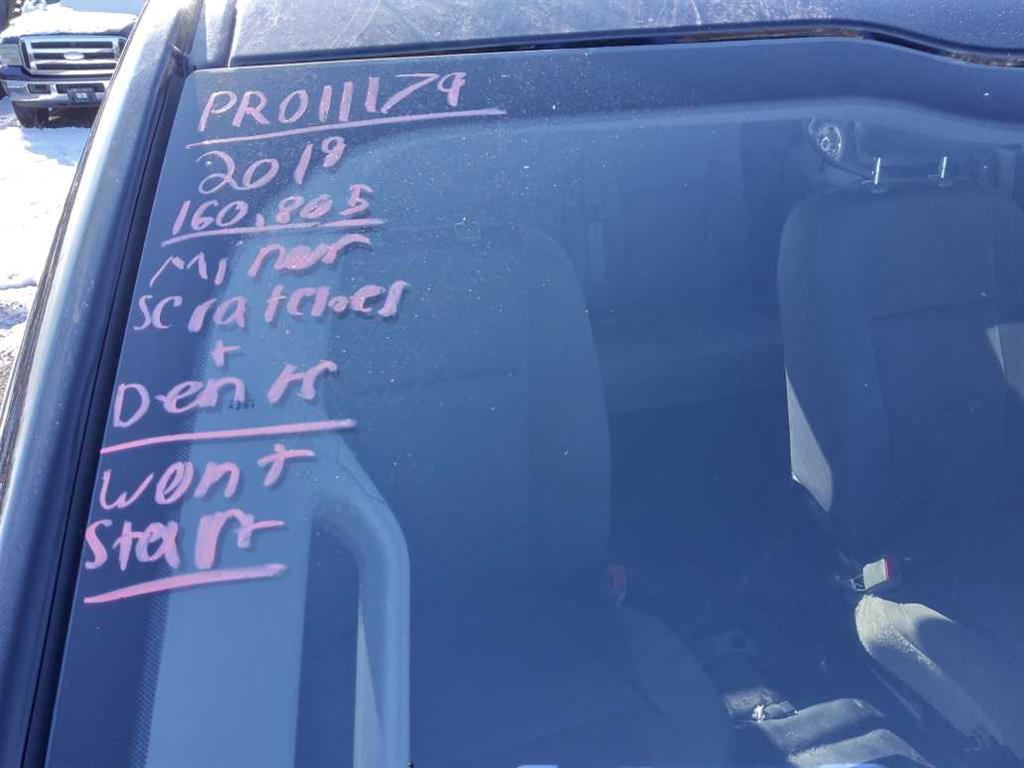 PRO11179
2018
160,805
Minor
scratches
+
Dents
wont
start